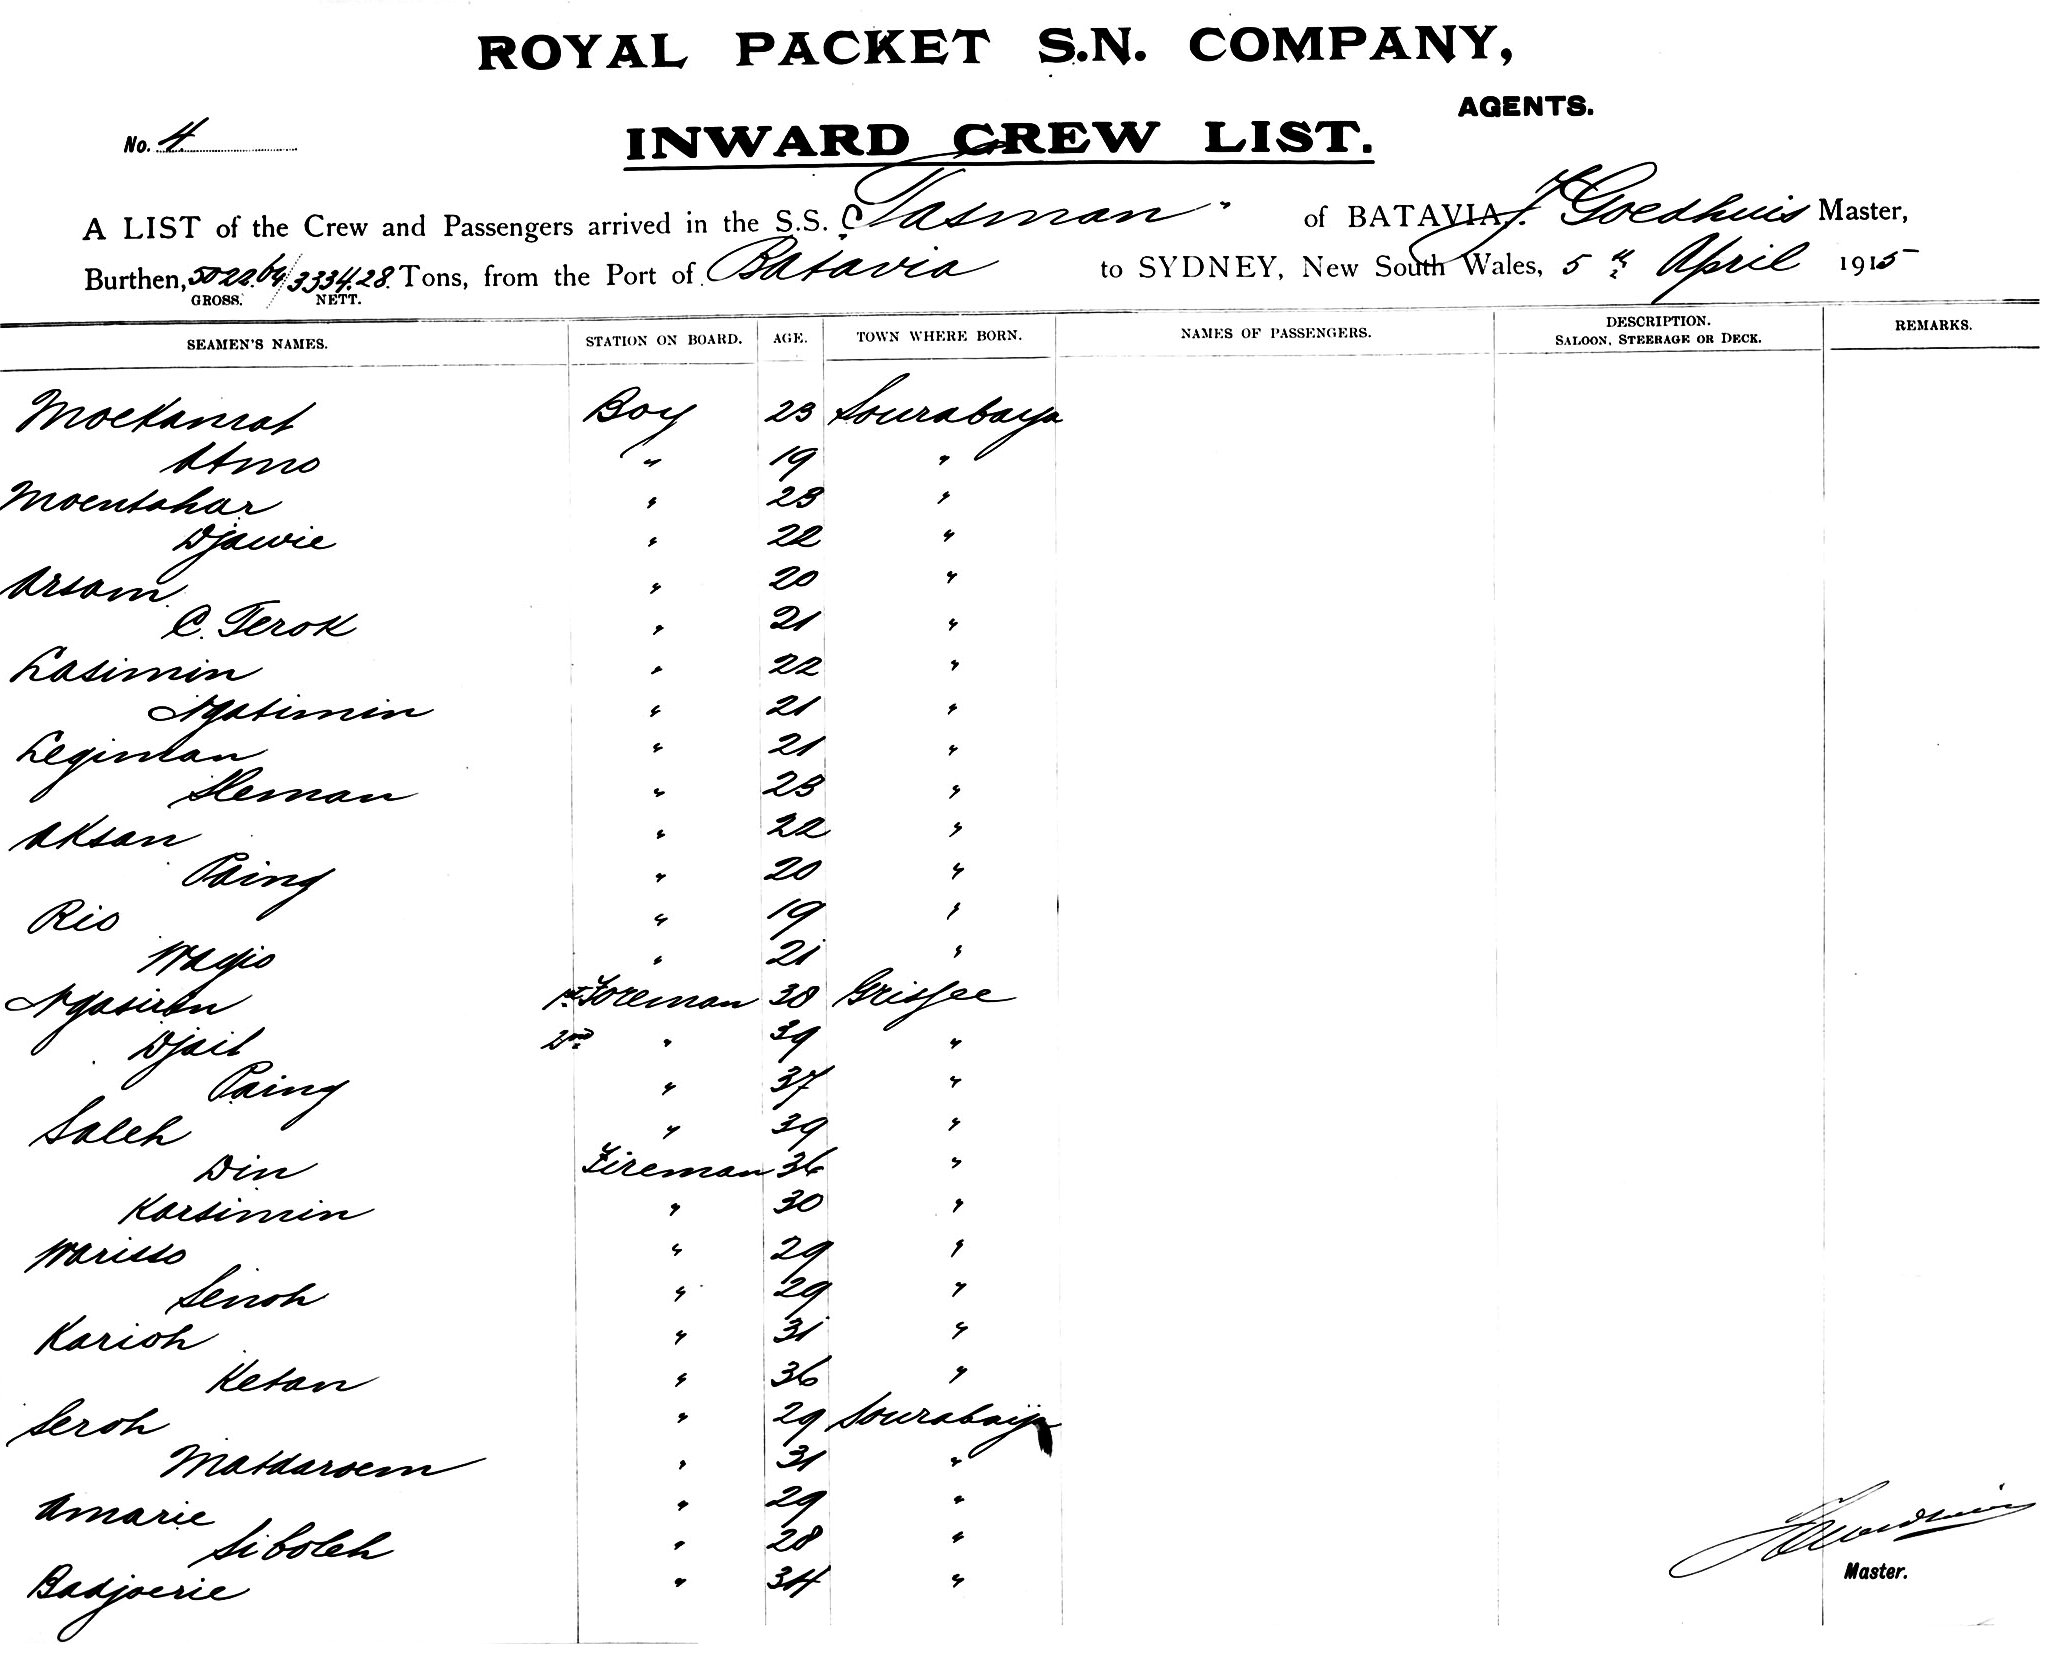 ROYAL PACKET S.N. COMPANY,
AGENTS.
No. 4
INWARD CREW LIST.
A LIST of the Crew and Passengers arrived in the S.S. "Tasman" of BATAVIA, J. Goedhuis Master,
Burthen, 5022.69/3334.28 Tons, from the Port of Batavia to SYDNEY, New South Wales, 5th April 1915
GROSS. NETT.
SEAMEN'S NAMES. STATION ON BOARD. AGE. TOWN WHERE BORN. NAMES OF PASSENGERS. DESCRIPTION. SALOON, STEERAGE OR DECK. REMARKS.
Moekamat Boy 23 Sourabaya
Atmo " 19 "
Moentahar " 23 "
Djawie " 22 "
Arsam " 20 "
C. Terok " 21 "
Lasimin " 22 "
Ngatimin " 21 "
Legiman " 21 "
Sleman " 23 "
Aksan " 22 "
Paing " 20 "
Rio " 19 "
Wagio " 21 "
Ngasiran 1st Foreman 38 Grissee
Djait 2nd " 39 "
Paing " 37 "
Saleh " 39 "
Din Fireman 36 "
Karsimin " 30 "
Warisso " 29 "
Senoh " 29 "
Karioh " 31 "
Ketan " 36 "
Seroh " 29 Sourabaija
Matdaroem " 31 "
Amarie " 29 "
Siboleh " 28 "
Badjoerie " 34 "
J Goedhuis
Master.